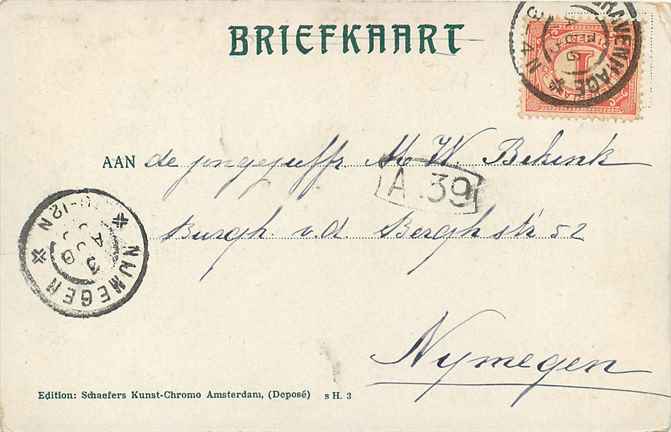 BRIEFKAART
'S GRAVENHAGE
AAN de jongejuffr. M. W. Behink
A 39
Burgh. v. d. Bergh str 52
NIJMEGEN
3 AUG
10-12 N
Nymegen
Edition: Schaefers Kunst-Chromo Amsterdam, (Deposé) s H. 3